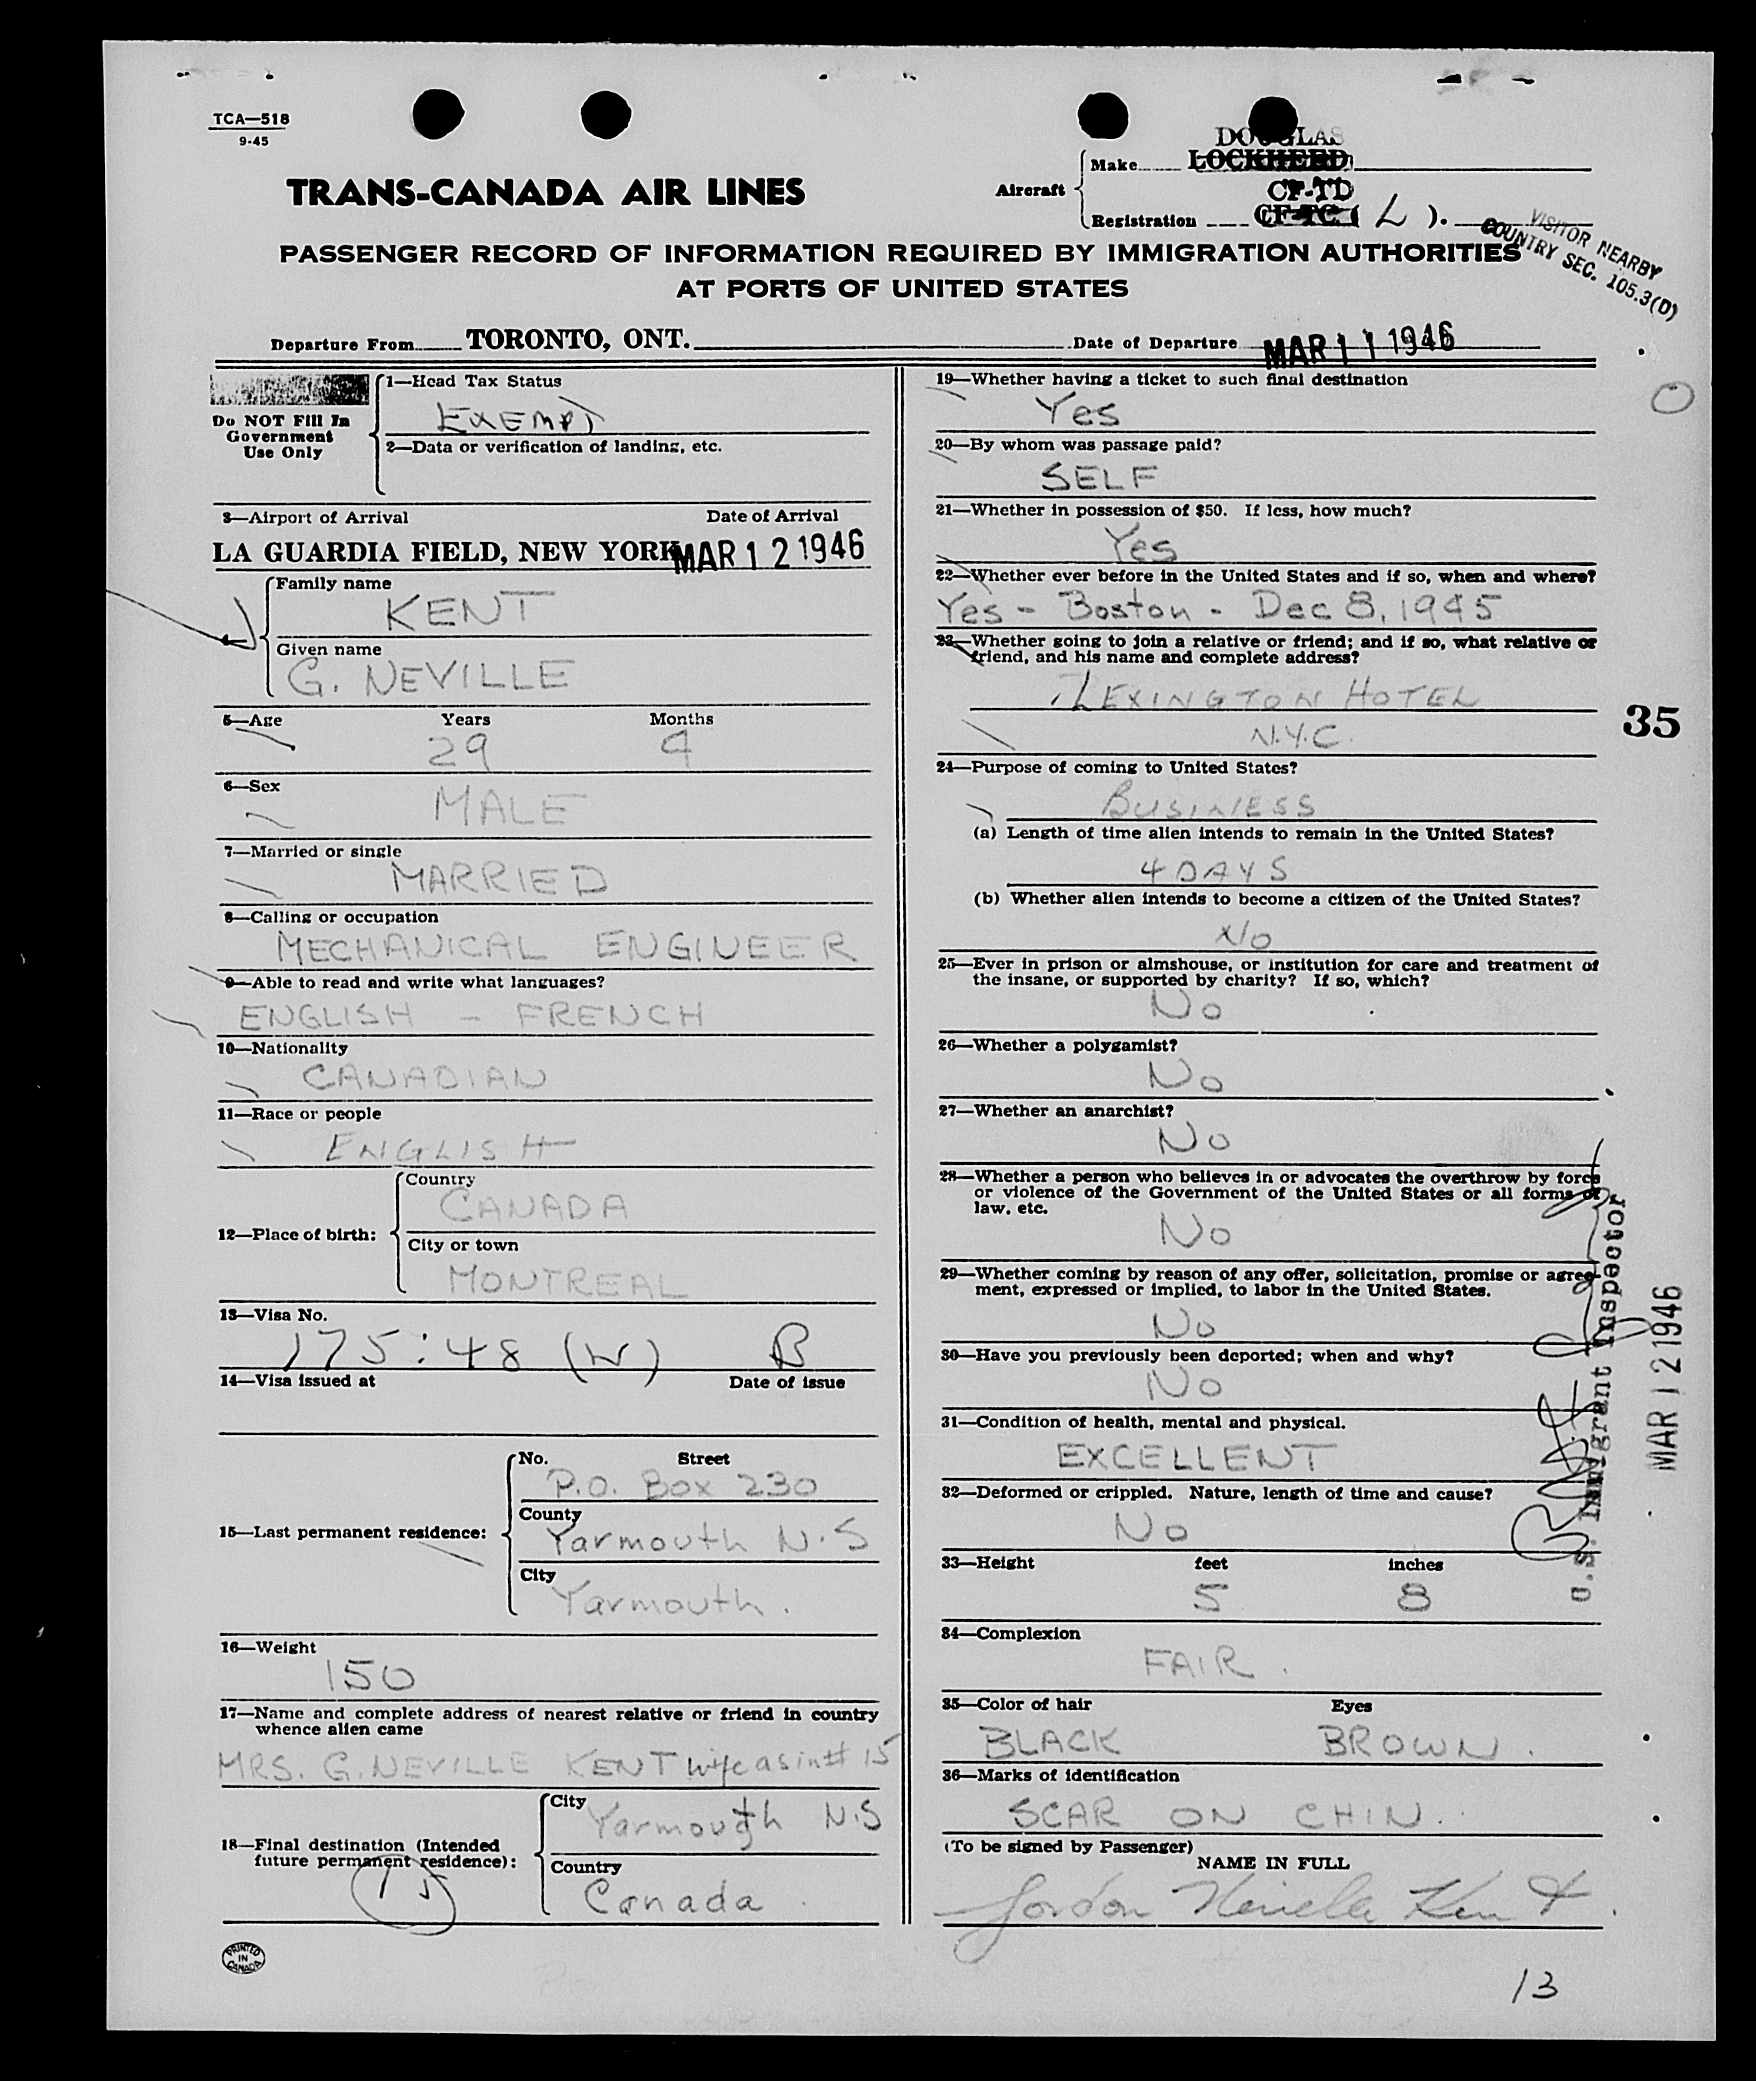 TCA—518
9-45
TRANS-CANADA AIR LINES
Aircraft
DOUGLAS
Make LOCKHEED
CF-TD
Registration CF-TC ( L ).
VISITOR NEARBY
COUNTRY SEC. 105.3(D)
PASSENGER RECORD OF INFORMATION REQUIRED BY IMMIGRATION AUTHORITIES
AT PORTS OF UNITED STATES
Departure From TORONTO, ONT. Date of Departure MAR 11 1946
Do NOT Fill In
Government
Use Only
1—Head Tax Status
EXEMPT
2—Data or verification of landing, etc.
3—Airport of Arrival Date of Arrival
LA GUARDIA FIELD, NEW YORK MAR 12 1946
Family name
KENT
Given name
G. NEVILLE
5—Age Years Months
29 4
6—Sex
MALE
7—Married or single
MARRIED
8—Calling or occupation
MECHANICAL ENGINEER
9—Able to read and write what languages?
ENGLISH - FRENCH
10—Nationality
CANADIAN
11—Race or people
ENGLISH
12—Place of birth:
Country
CANADA
City or town
MONTREAL
13—Visa No.
175:48 (W) B
14—Visa issued at Date of issue
15—Last permanent residence:
No. Street
P.O. Box 230
County
Yarmouth N.S
City
Yarmouth.
16—Weight
150
17—Name and complete address of nearest relative or friend in country
whence alien came
MRS. G. NEVILLE KENT wife as in # 15
18—Final destination (Intended
future permanent residence):
City
Yarmouth N.S
Country
Canada
15
PRINTED
IN
CANADA
19—Whether having a ticket to such final destination
Yes
20—By whom was passage paid?
SELF
21—Whether in possession of $50. If less, how much?
Yes
22—Whether ever before in the United States and if so, when and where?
Yes - Boston - Dec 8, 1945
23—Whether going to join a relative or friend; and if so, what relative or
friend, and his name and complete address?
LEXINGTON HOTEL
N.Y.C.
35
24—Purpose of coming to United States?
BUSINESS
(a) Length of time alien intends to remain in the United States?
4 DAYS
(b) Whether alien intends to become a citizen of the United States?
No
25—Ever in prison or almshouse, or institution for care and treatment of
the insane, or supported by charity? If so, which?
No
26—Whether a polygamist?
No
27—Whether an anarchist?
No
28—Whether a person who believes in or advocates the overthrow by force
or violence of the Government of the United States or all forms of
law, etc.
No
29—Whether coming by reason of any offer, solicitation, promise or agree-
ment, expressed or implied, to labor in the United States.
No
30—Have you previously been deported; when and why?
No
31—Condition of health, mental and physical.
EXCELLENT
32—Deformed or crippled. Nature, length of time and cause?
No
33—Height feet inches
5 8
34—Complexion
FAIR.
35—Color of hair Eyes
BLACK BROWN.
36—Marks of identification
SCAR ON CHIN.
(To be signed by Passenger)
NAME IN FULL
Gordon Neville Kent
U.S. Immigrant Inspector
MAR 12 1946
13